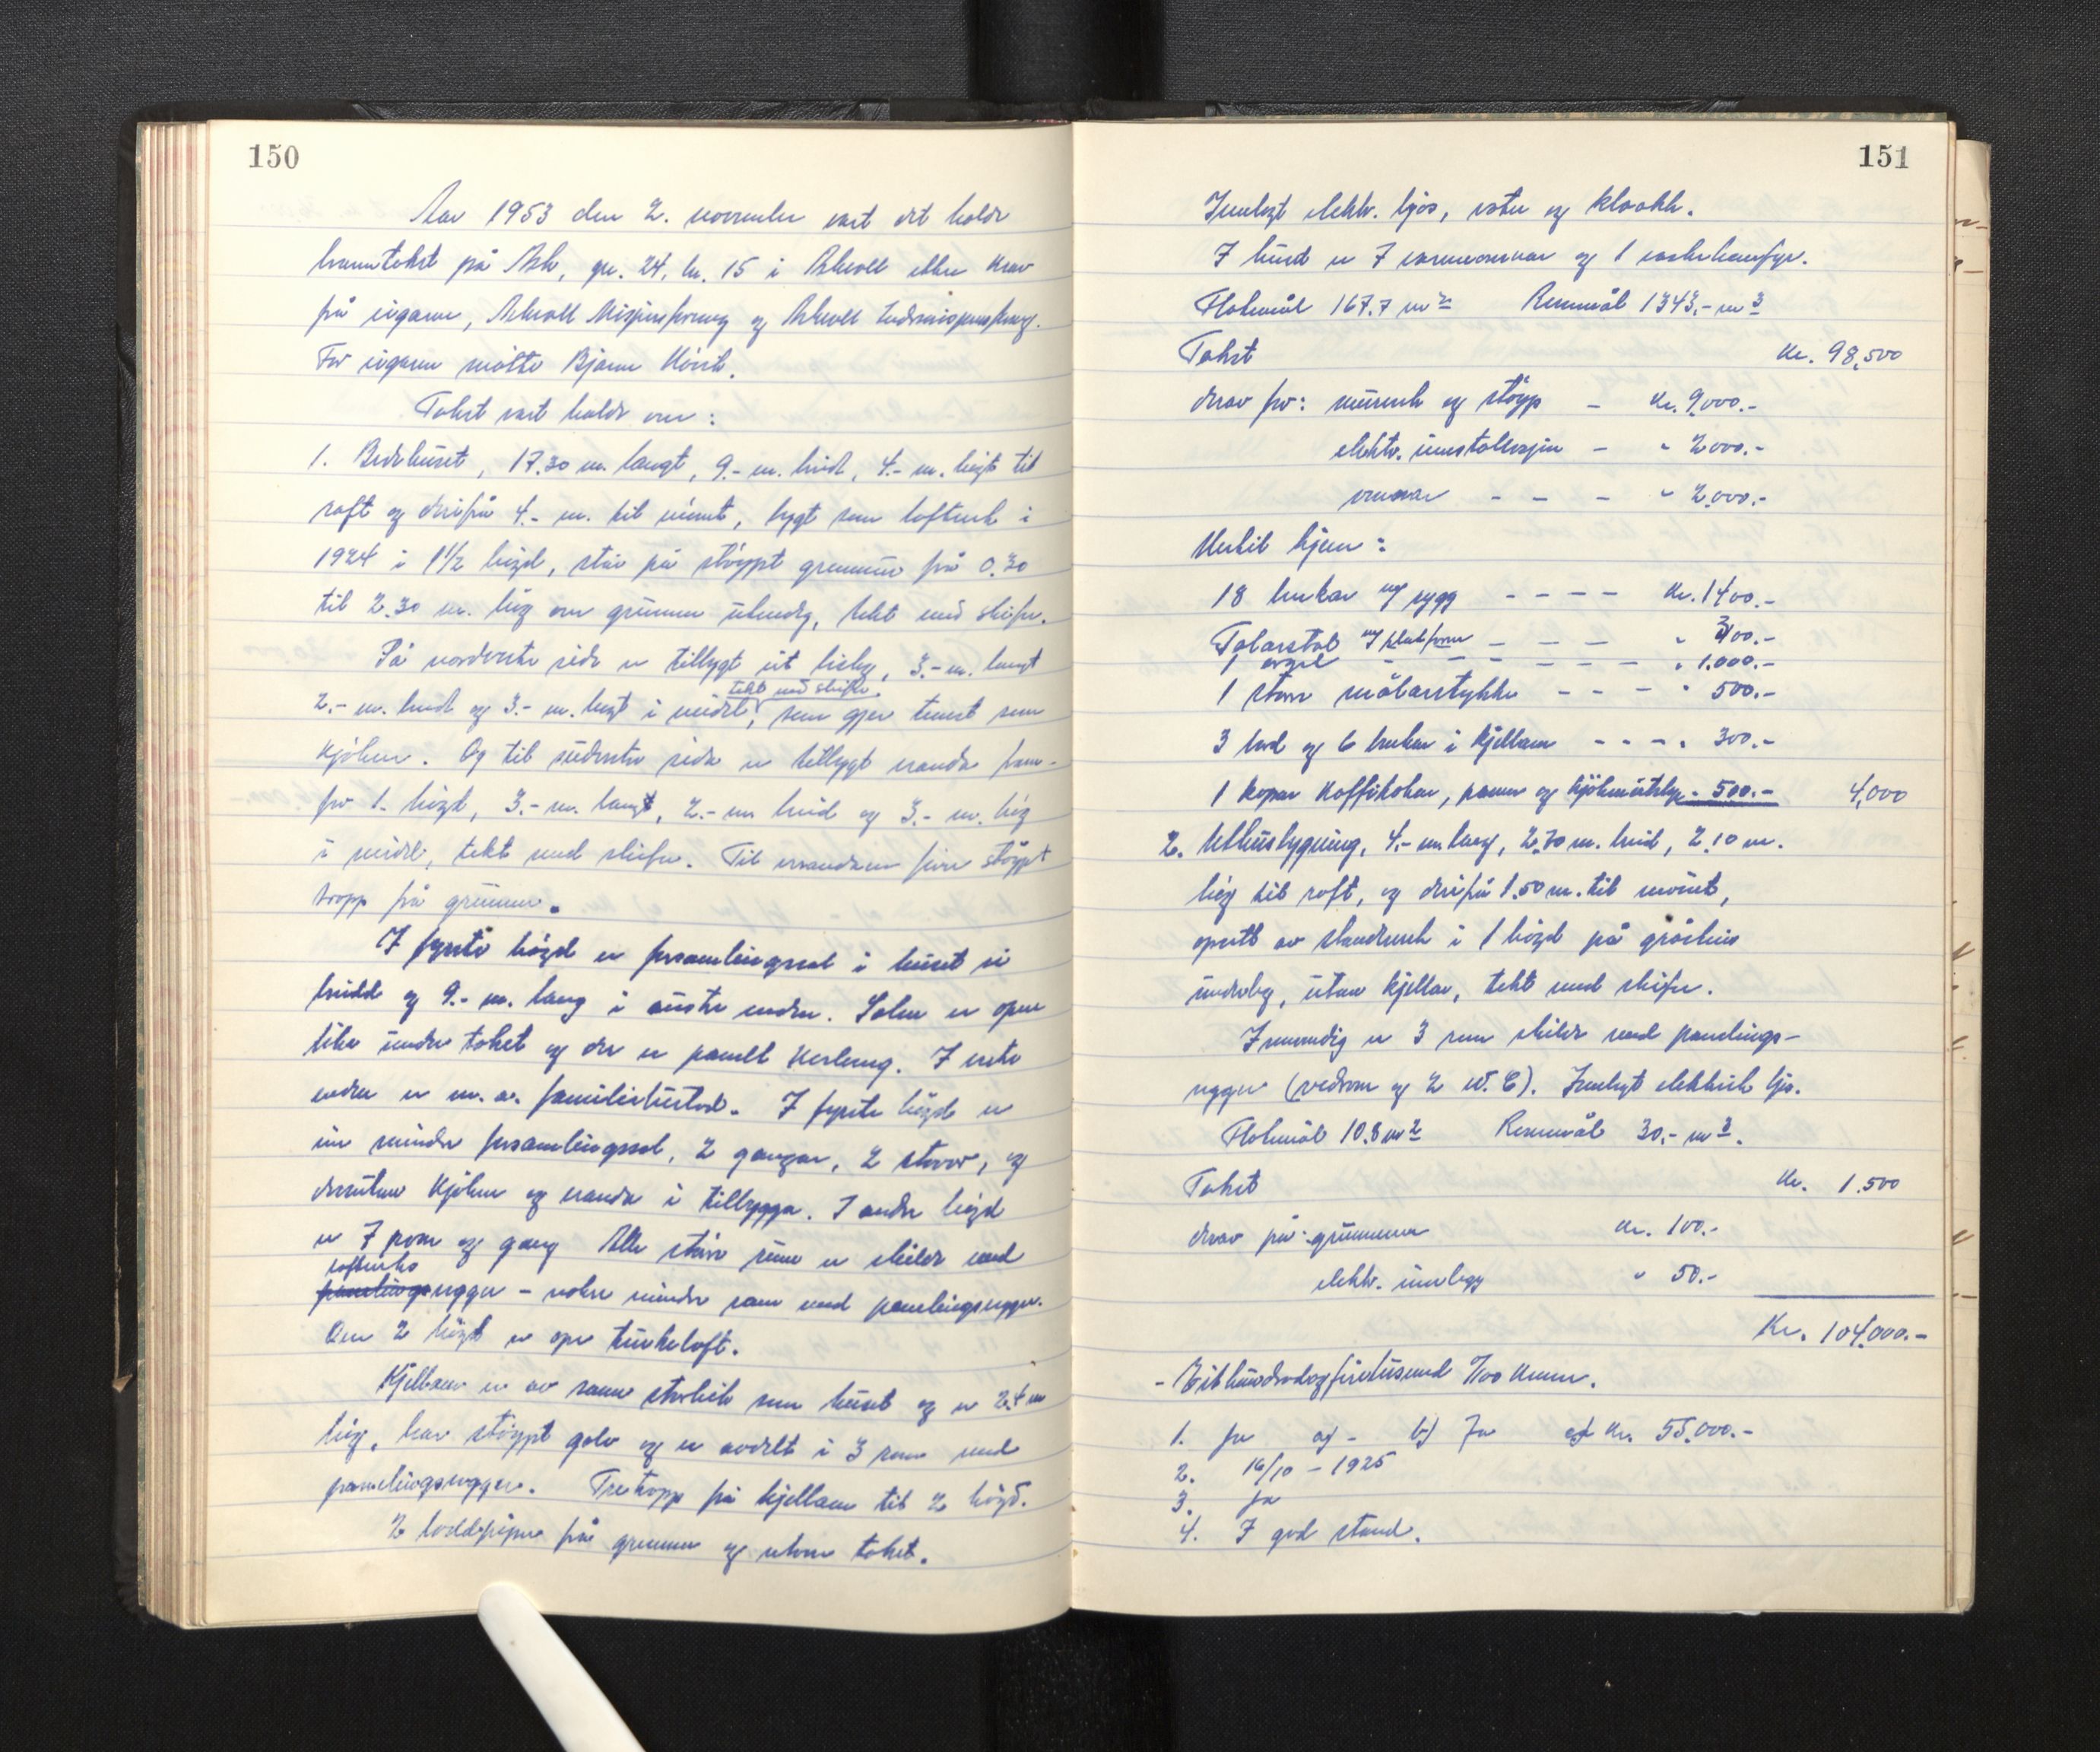 150
Aar 1953 den 2. november vart det halde
branntakst på Ask, gn. 24, bn. 15 i Askvoll etter krav
frå eigarne, Askvoll Misjonsforening og Askvoll Indremisjonsforeng.
For eigarne møtte Bjarne
Takst vart halde over:
1. Bedehuset, 17.30 m. langt, 9.- m. bredt, 4.- m. högt til
raft og derifrå 4.- m. til mönet, bygt som loftverk i
1924 i 1 1/2 högd, står på stöypt grunnmur frå 0.30
til 2.30 m. hög over grunnen utvendig, tekt med skifer.
På nordvestre side er tilbygt eit bislag, 3.- m. langt
tekt med skifer
2.- m. bredt og 3.- m. högt i midtl, som gjer tenest som
kjöken. Og til sudvestre sida er tilbygt veranda fram-
for 1. högd, 3.- m. lang, 2.- m breid og 3.- m. hög
i midtl, tekt med skifer. Til verandaen förer stöypt
tropp frå grunnen.
I fyrste högd er forsamlingssal i huset si
breidd og 9.- m. lang i austre enden. Salen er open
like under taket og der er panelt kvelving. I vestre
enden er m. a. familiebustad. I fyrste högd er
ein mindre forsamlingssal, 2 gangar, 2 stover, og
dessutan kjöken og veranda i tilbygga. I andre högd
er 7 rom og gang Alle större rom er skilde med
loftverks
panelingsvegger - nokre mindre rom med panelingsvegger.
Over 2 högd er ope turkeloft.
Kjellaren er av same storleik som huset og er 2.4 m
hög, har stöypt golv og er avdelt i 3 rom med
panelingsvegger. Tretropp frå kjellaren til 2 högd.
2 teglpiper frå grunnen og utover taket.
151
Innlagt elektr. ljos, vatn og kloakk.
I huset er 7 varmeomnar og 1 vaskekomfyr.
Flatemål 167.7 m2 Romemål 1343.- m3
Takst kr. 98,500
derav for: murverk og stöyp - kr. 9,000.-
elektr. innstallasjon - " 2000.-
omnar - - - " 2,000.-
Hertil kjem:
18 benkar m/ rygg - - - - kr. 1400.-
Talarstol m/ platform - - - " 300.-
1 orgel - - - - - - - " 1.000.-
1 större målarstykke - - - " 500.-
3 bord og 6 benkar i kjellaren - - - " 300.-
1 kopar kaffikokar, panner og kjökenutstyr - 500.- 4,000
2. Uthusbygning, 4.- m. lang, 2.70 m. breid, 2.10 m.
hög til raft, og derifrå 1.50 m. til mönet,
oppsett av standverk i 1 högd på gråsteins
underlag, utan kjellar, tekt med skifer.
Innvendig er 3 rom skilde med panelings-
vegger (vedrom og 2 W.C). Innlagt elektrisk ljos.
Flatemål 10.8 m2 Romemål 30.- m3.
Takst kr. 1.500
derav på: grunnmur kr. 100.-
elektr. innlegg " 50.-
Kr. 104,000.-
- Eithundredogfiretusend 0/100 kroner.
1. Ja a) - b) Ja c) kr. 55,000.-
2. 16/10 - 1925
3. Ja
4. I god stand.